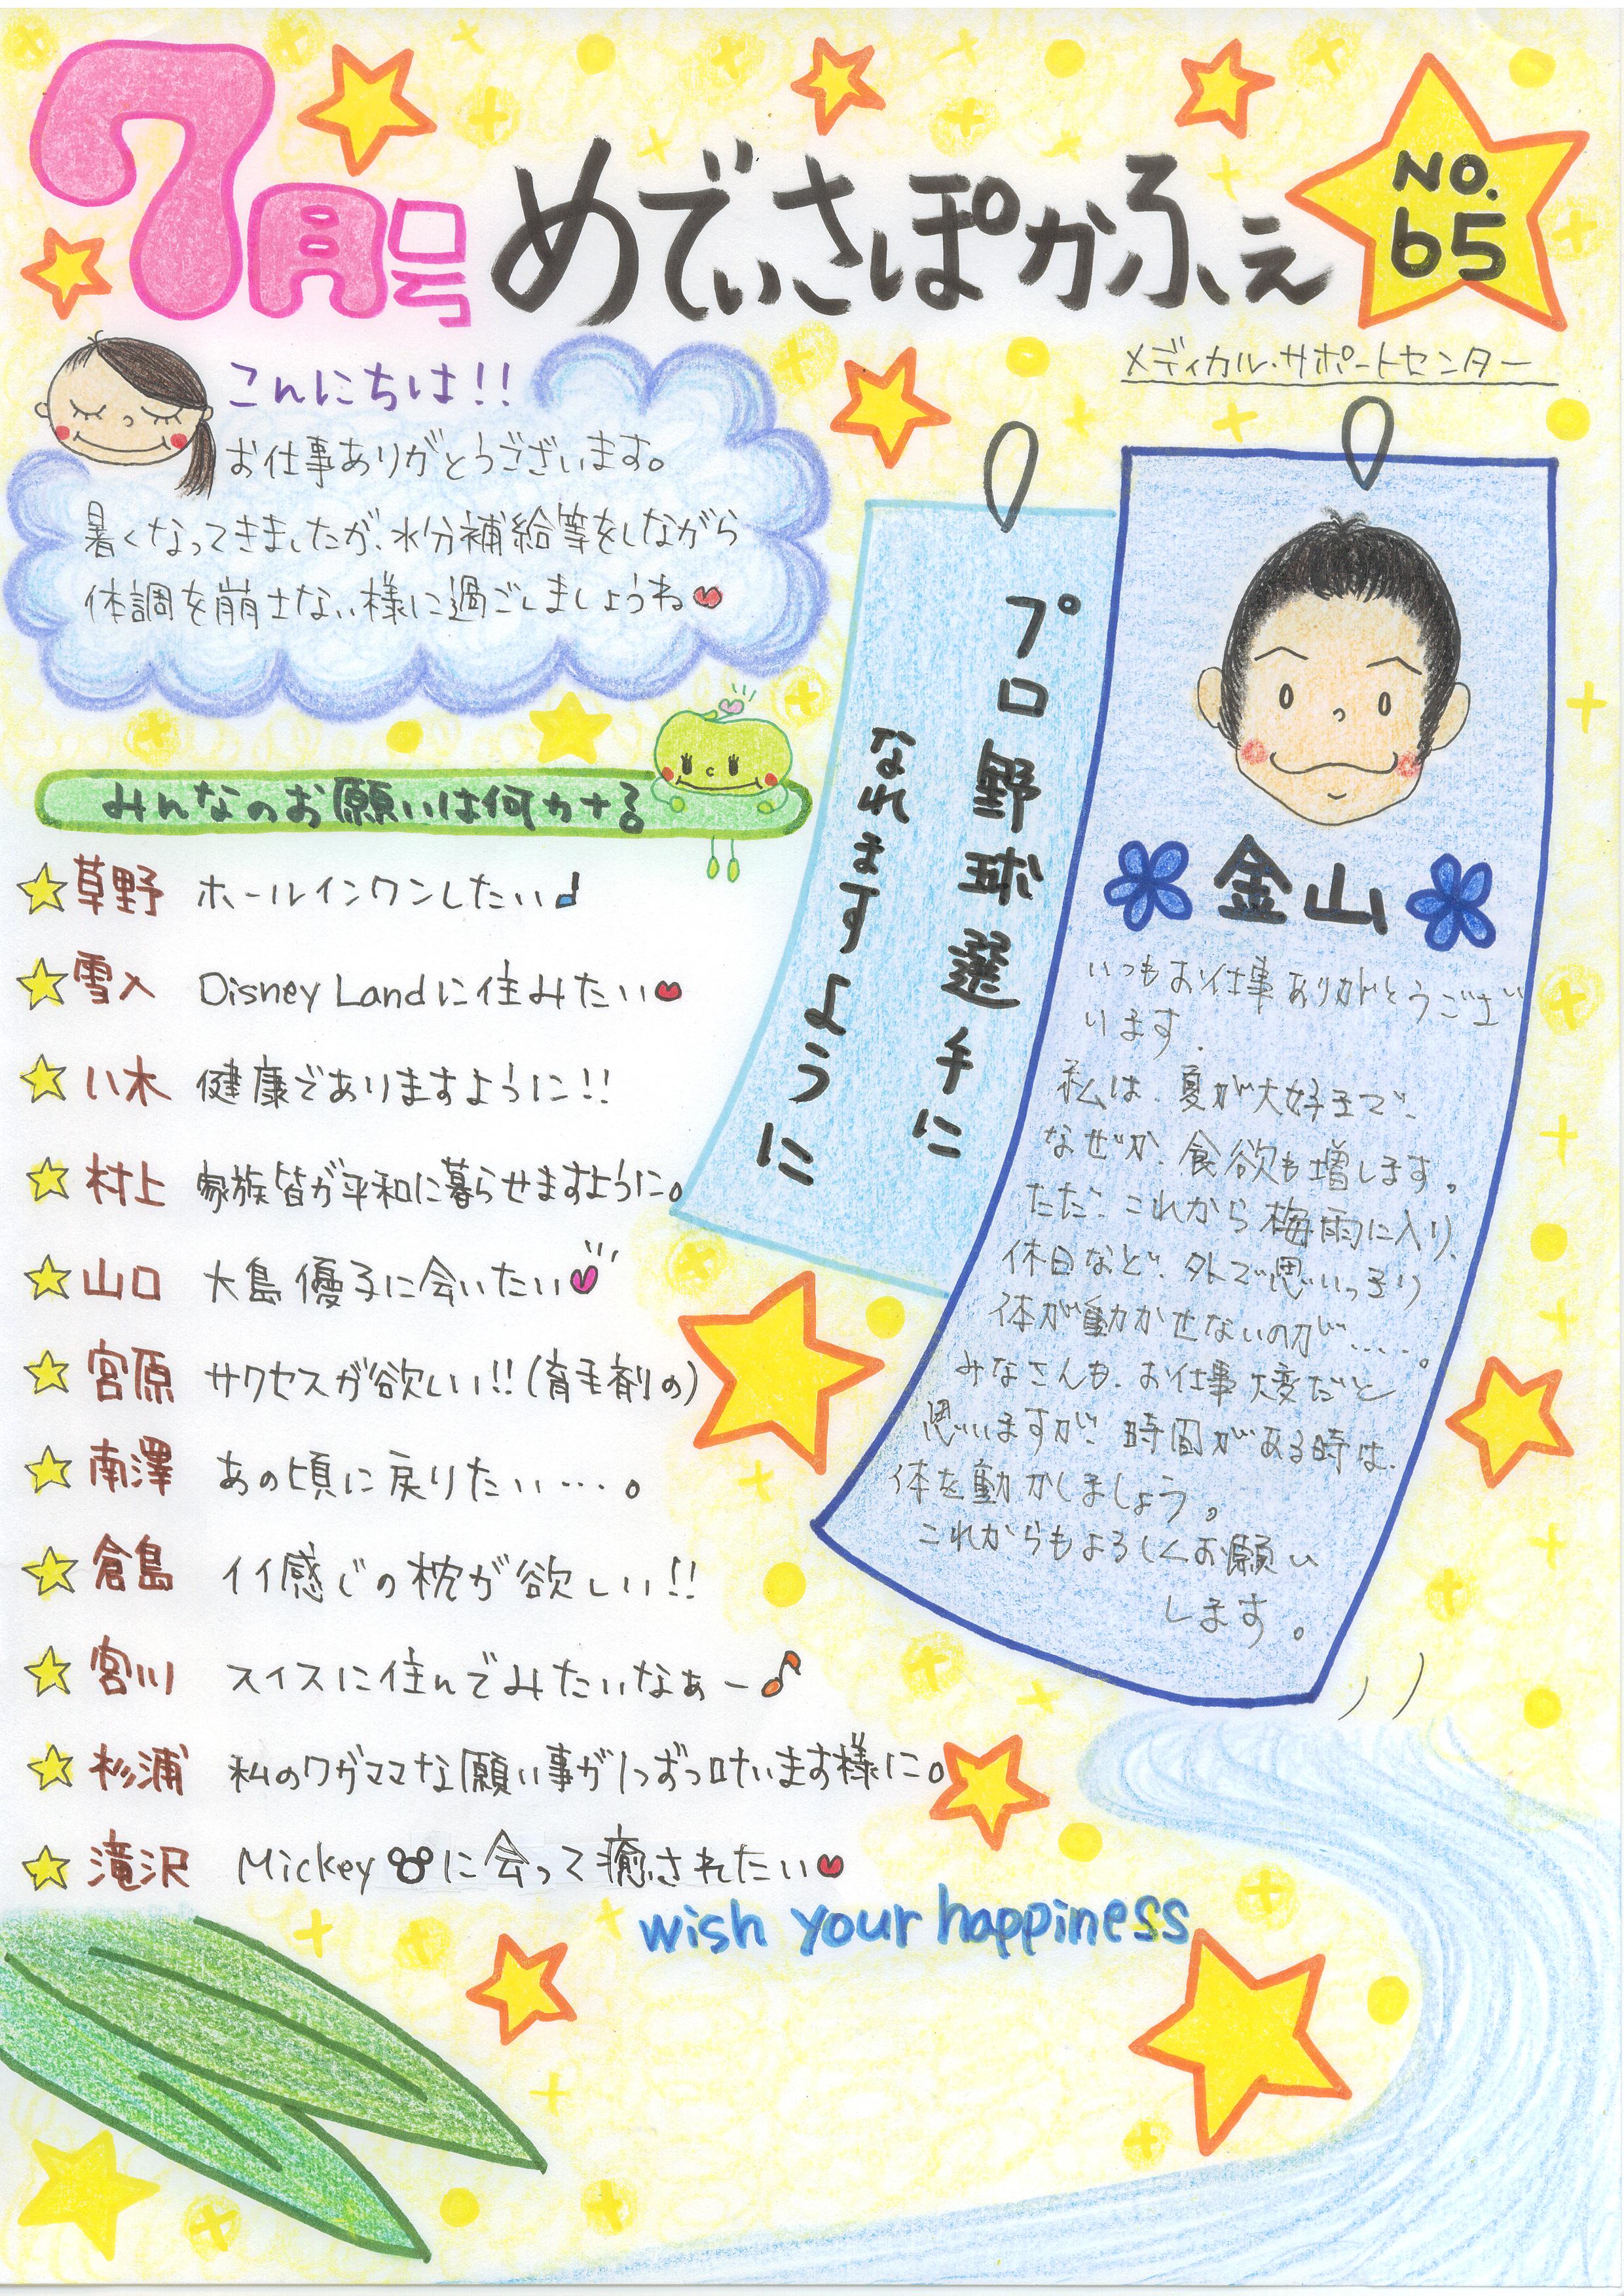 7月号
めでぃさぽかふぇ
No.
65
メディカル・サポートセンター
こんにちは!!
お仕事ありがとうございます。
暑くなってきましたが、水分補給等をしながら
体調を崩さない様に過ごしましょうね
みんなのお願いは何かな
草野 ホールインワンしたい♪
雪入 Disney Landに住みたい
八木 健康でありますように!!
村上 家族皆が平和に暮らせますように。
山口 大島優子に会いたい
宮原 サクセスが欲しい!!(育毛剤の)
南澤 あの頃に戻りたい…。
倉島 イイ感じの枕が欲しい!!
宮川 スイスに住んでみたいなぁー♪
杉浦 私のワガママな願い事が1つずつ叶います様に。
滝沢 Mickeyに会って癒されたい
プロ野球選手に
なれますように
金山
いつもお仕事ありがとうござい
います.
私は、夏が大好きで、
なぜか、食欲も増します。
ただ、これから梅雨に入り、
休日など、外で思いっきり
体が動かせないのが……。
みなさんも、お仕事大変だと
思いますが、時間がある時は、
体を動かしましょう。
これからもよろしくお願い
します。
wish your happiness